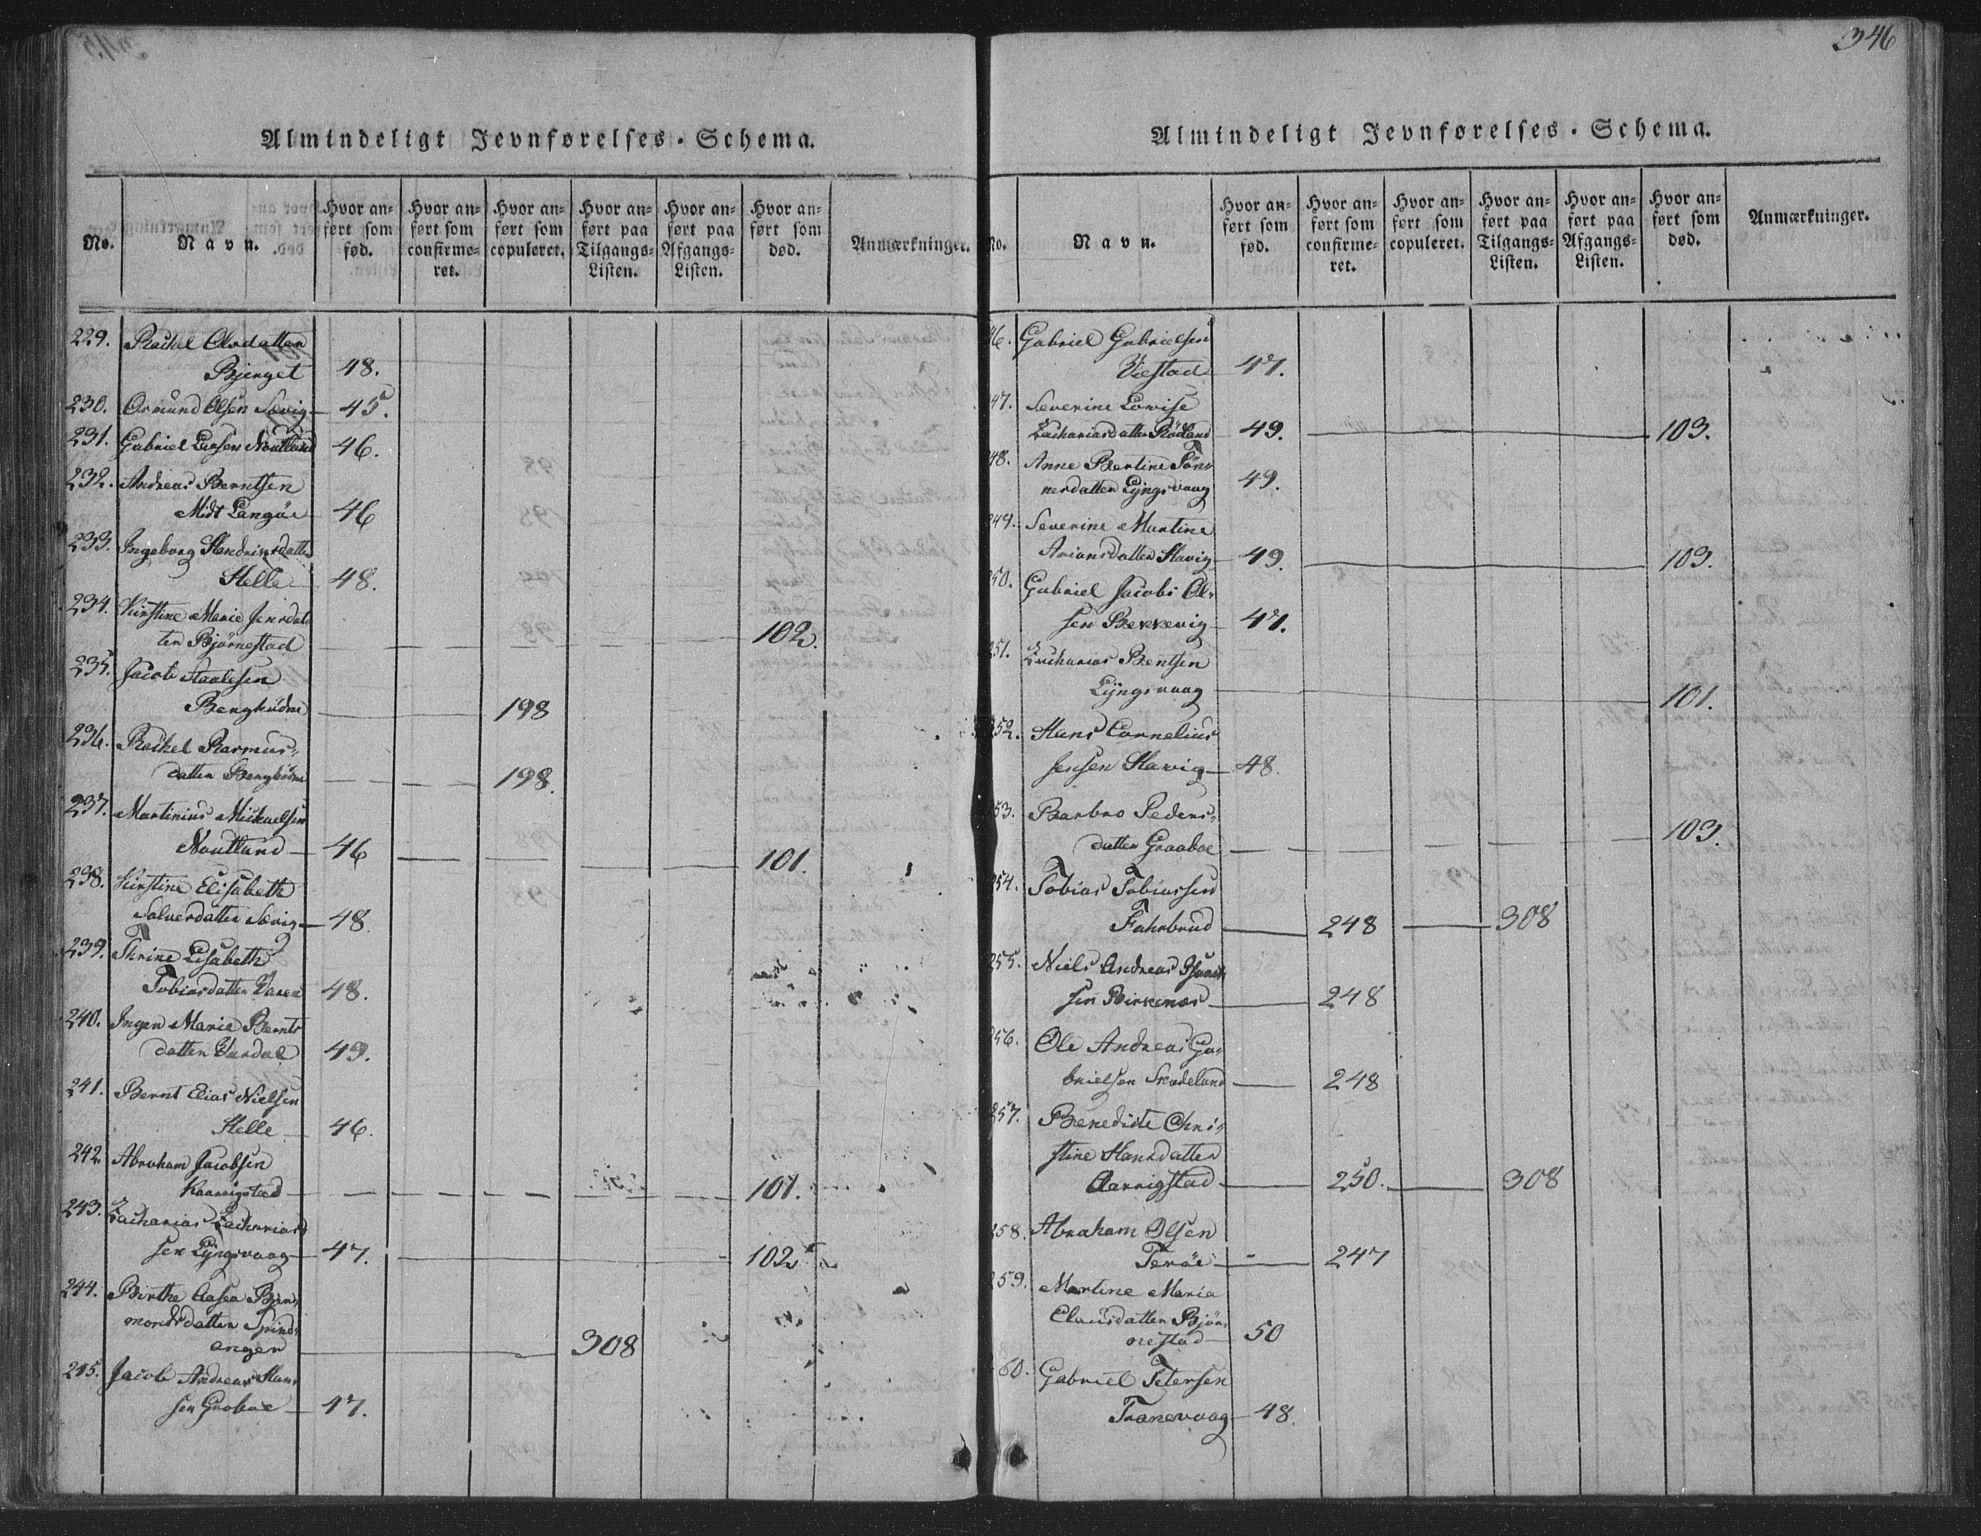 346
Almindeligt Jevnførelses-Schema.
No. Navn. Hvor anført som fød. Hvor anført som confirmeret. Hvor anført som copuleret. Hvor anført paa Tilgangs-Listen. Hvor anført paa Afgangs-Listen. Hvor anført som død. Anmærkninger.
229. Rachel Olsdatter
Bjerget 48.
230. Osmund Olsen Sævig 45.
231. Gabriel Larsen Noutland 46.
232. Andreas Berntsen
Midt Langøe 46
233. Ingeborg Hendricsdatter
Helle 48.
234. Kirstine Marie Jensdat
ter Bjørnestad 102.
235. Jacob Staalesen
198
236. Rachel Rasmus-
datter 198.
237. Martinius Mickaelsen
Noutland 46 101.
238. Kirstine Elisabeth
Salvesdatter Sævig 48.
239. Thrine Lisabeth
Tobiasdatter 48.
240. Inger Marie Bernts
datter Vardal 49.
241. Bernt Elias Nielsen
Helle 46.
242. Abraham Jacobsen
101.
243. Zacharias Zacharias
sen Lÿngsvaag 47. 102.
244. Birthe Aasea
mondsdatter Spind-
angen 308
245. Jacob Andreas Han
sen Groboe 47.
Almindeligt Jevnførelses-Schema.
No. Navn. Hvor anført som fød. Hvor anført som confirmeret. Hvor anført som copuleret. Hvor anført paa Tilgangs-Listen. Hvor anført paa Afgangs-Listen. Hvor anført som død. Anmærkninger.
46. Gabriel Gabrielsen
Viestad 47.
47. Severine Lovise
Zachariasdatter Rødland 49. 103.
48. Anne Bertine Tøn-
nesdatter Lÿngsvaag 49.
249. Severine Martine
Ariansdatter Havig 49. 103.
50. Gabriel Jacobs Ol-
sen Bekkevig 47.
251. Zacharias Bentsen
Lÿngsvaag 101.
252. Hans Cornelius
Jensen Havig 48.
53. Barbro Peders-
datter Graaboe 103.
254. Tobias Tobiassen
Fahrbrud 248 308
255. Niels Andreas
sen Birkenæs 248
256. Ole Andreas Ga-
brielsen Skudeland 248
257. Benedicte Chri-
stine Hansdatter
Aarrigstad 250. 308
258. Abraham Olsen
Terøe 247
259. Martine Maria
Clausdatter Bjør-
nestad 50
60. Gabriel Petersen
Tranevaag 48.